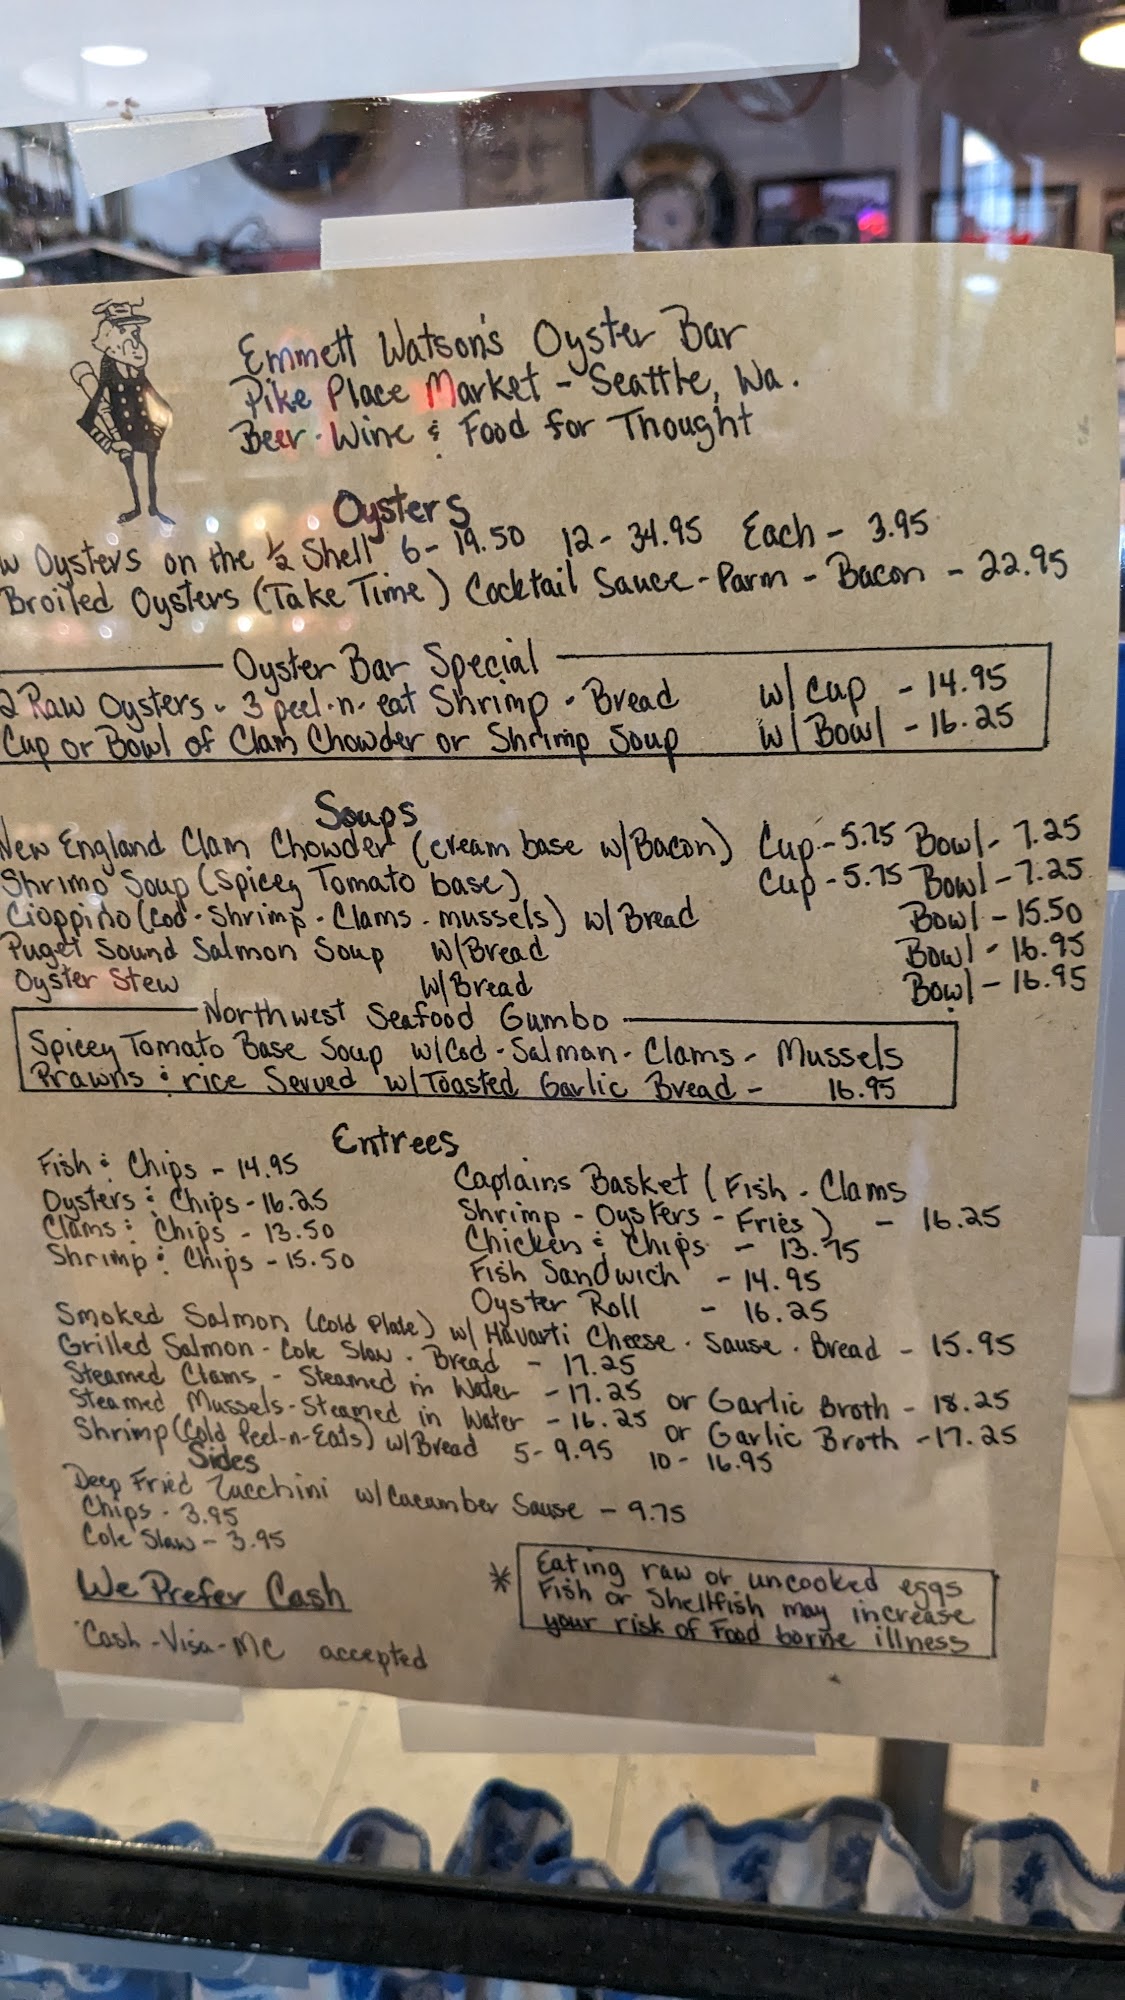 Emmett Watson's Oyster Bar
Pike Place Market - Seattle, Wa.
Beer · Wine & Food for Thought
Oysters
w Oysters on the 1/2 Shell 6 - 19.50 12 - 34.95 Each - 3.95
Broiled Oysters (Take Time) Cocktail Sauce - Parm - Bacon - 22.95
Oyster Bar Special
2 Raw Oysters - 3 peel-n-eat Shrimp - Bread w/ Cup - 14.95
Cup or Bowl of Clam Chowder or Shrimp Soup w/ Bowl - 16.25
Soups
New England Clam Chowder (cream base w/Bacon) Cup - 5.75 Bowl - 7.25
Shrimp Soup (Spicey Tomato base) Cup - 5.75 Bowl - 7.25
Cioppino (Cod - Shrimp - Clams - mussels) w/ Bread Bowl - 15.50
Puget Sound Salmon Soup w/Bread Bowl - 16.95
Oyster Stew w/Bread Bowl - 16.95
Northwest Seafood Gumbo
Spicey Tomato Base Soup w/Cod - Salmon - Clams - Mussels
Prawns & rice Served w/Toasted Garlic Bread - 16.95
Entrees
Fish & Chips - 14.95
Oysters & Chips - 16.25
Clams & Chips - 13.50
Shrimp & Chips - 15.50
Captains Basket (Fish - Clams
Shrimp - Oysters - Fries) - 16.25
Chicken & Chips - 13.75
Fish Sandwich - 14.95
Oyster Roll - 16.25
Smoked Salmon (Cold Plate) w/ Havarti Cheese · Sause · Bread - 15.95
Grilled Salmon - Cole Slaw · Bread - 17.25
Steamed Clams - Steamed in Water - 17.25 or Garlic Broth - 18.25
Steamed Mussels - Steamed in Water - 16.25 or Garlic Broth - 17.25
Shrimp (Cold Peel-n-Eats) w/Bread 5 - 9.95 10 - 16.95
Sides
Deep Fried Zucchini w/Cucumber Sause - 9.75
Chips - 3.95
Cole Slaw - 3.95
We Prefer Cash
Cash - Visa - MC accepted
* Eating raw or uncooked eggs
Fish or Shellfish may increase
your risk of Food borne illness